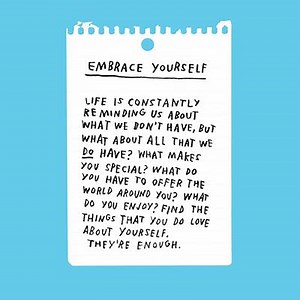 EMBRACE YOURSELF
LIFE IS CONSTANTLY
REMINDING US ABOUT
WHAT WE DON'T HAVE, BUT
WHAT ABOUT ALL THAT WE
DO HAVE? WHAT MAKES
YOU SPECIAL? WHAT DO
YOU HAVE TO OFFER THE
WORLD AROUND YOU? WHAT
DO YOU ENJOY? FIND THE
THINGS THAT YOU DO LOVE
ABOUT YOURSELF.
THEY'RE ENOUGH.